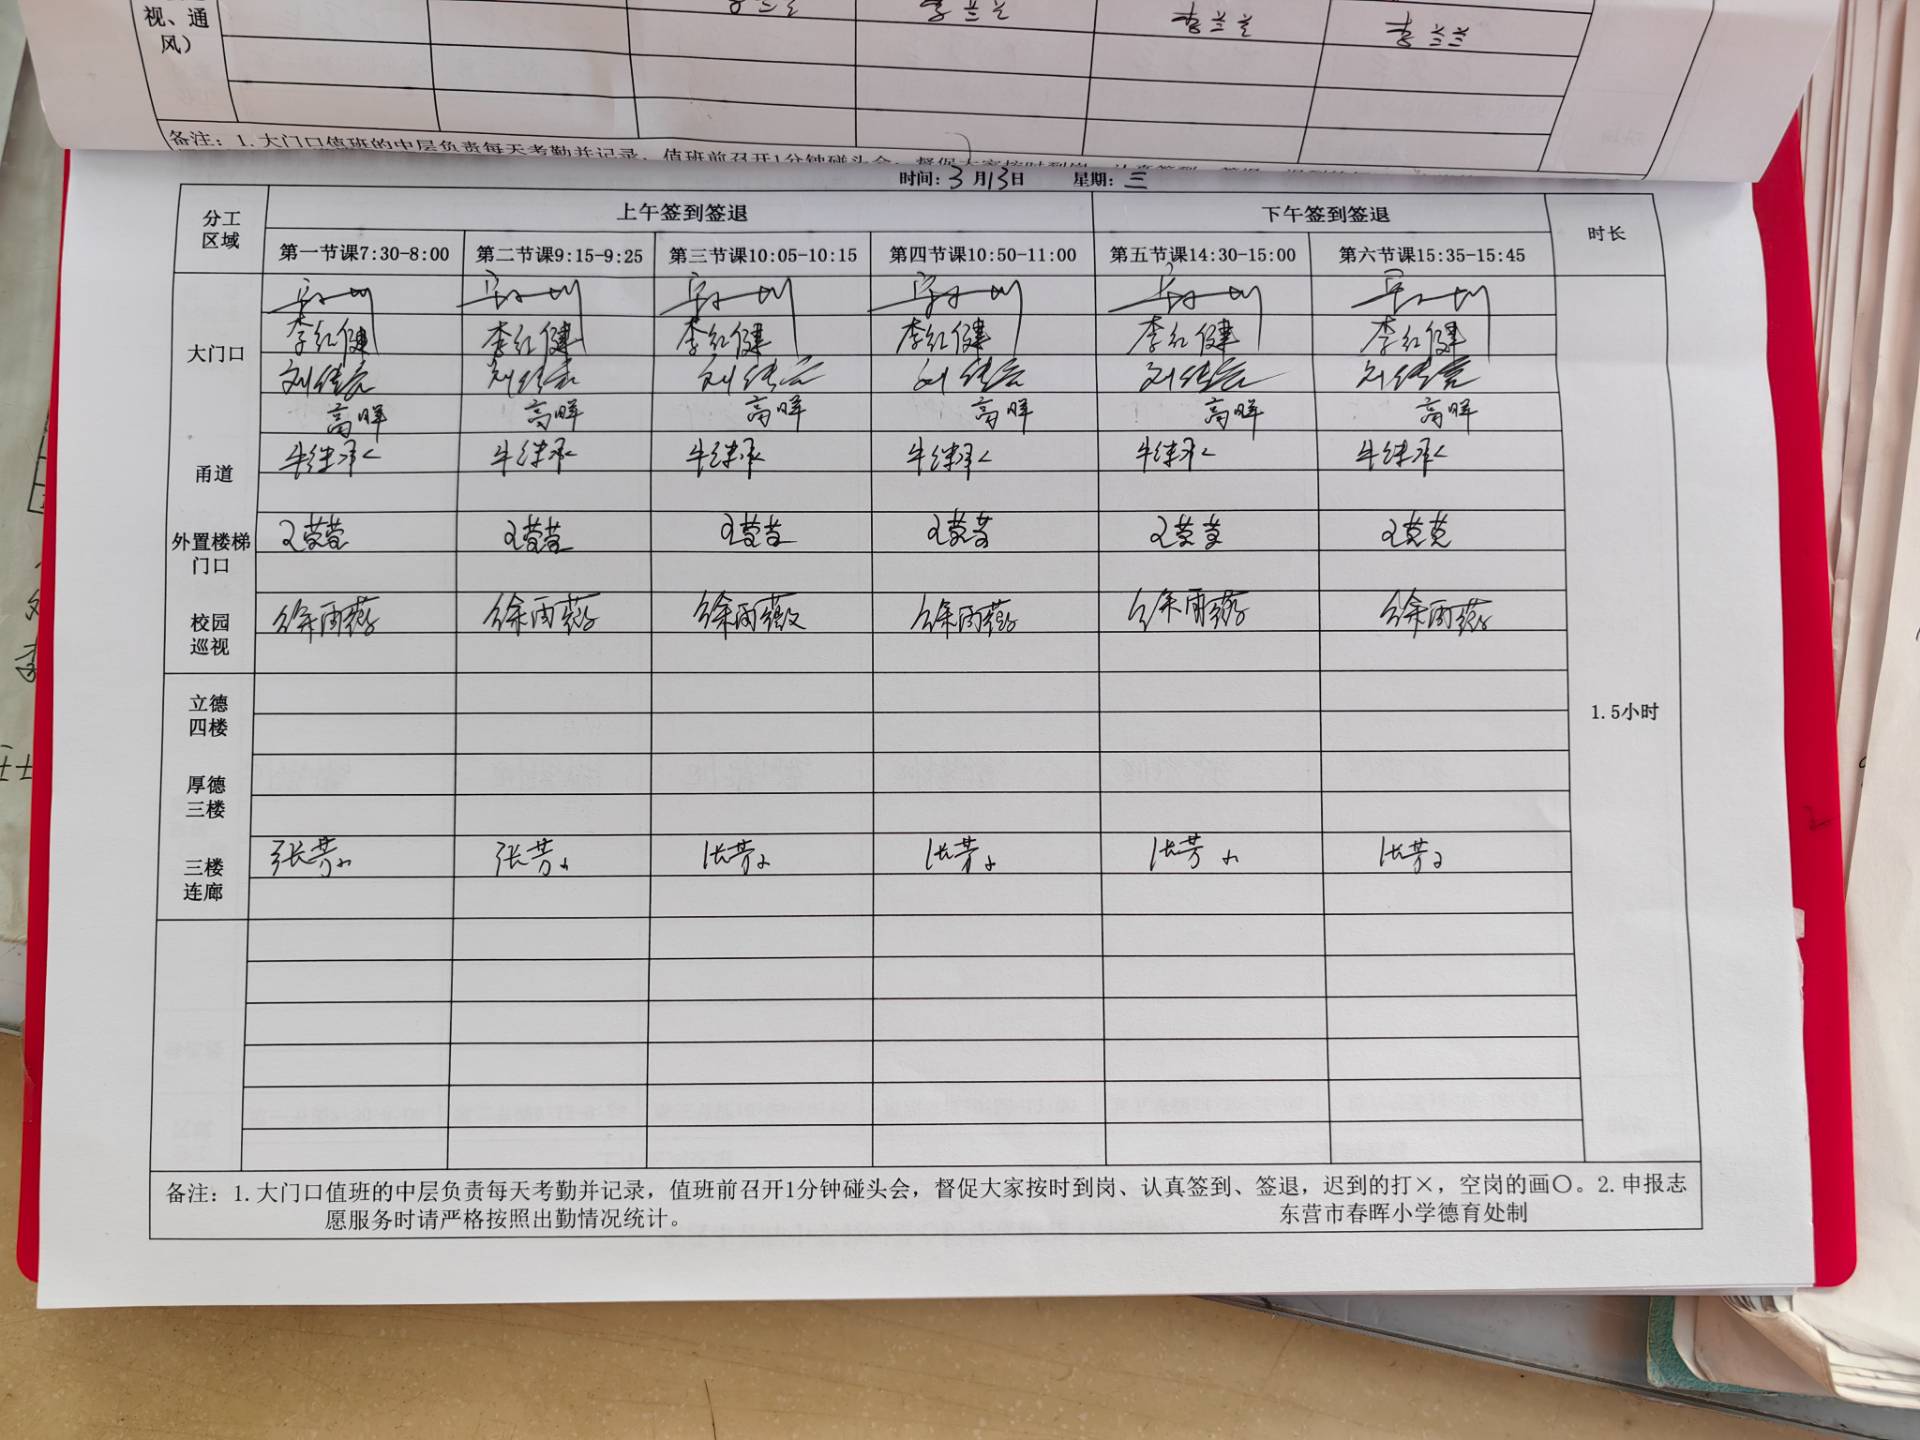 视、通
风）
李兰兰 李兰兰 李兰兰 李兰兰
备注：1.大门口值班的中层负责每天考勤并记录，值班前召开1分钟碰头会，督促大家按时到岗、认真签到、签退，迟到的
时间：3月13日 星期：三
分工
区域
上午签到签退 下午签到签退 时长
第一节课7:30-8:00 第二节课9:15-9:25 第三节课10:05-10:15 第四节课10:50-11:00 第五节课14:30-15:00 第六节课15:35-15:45
大门口
李红健 李红健 李红健 李红健 李红健 李红健
高晖 高晖 高晖 高晖 高晖 高晖
甬道
牛继承 牛继承 牛继承 牛继承 牛继承 牛继承
外置楼梯
门口
校园
巡视
徐雨燕 徐雨燕 徐雨燕 徐雨燕 徐雨燕 徐雨燕
立德
四楼
1.5小时
厚德
三楼
三楼
连廊
备注：1.大门口值班的中层负责每天考勤并记录，值班前召开1分钟碰头会，督促大家按时到岗、认真签到、签退，迟到的打×，空岗的画〇。2.申报志
愿服务时请严格按照出勤情况统计。 东营市春晖小学德育处制